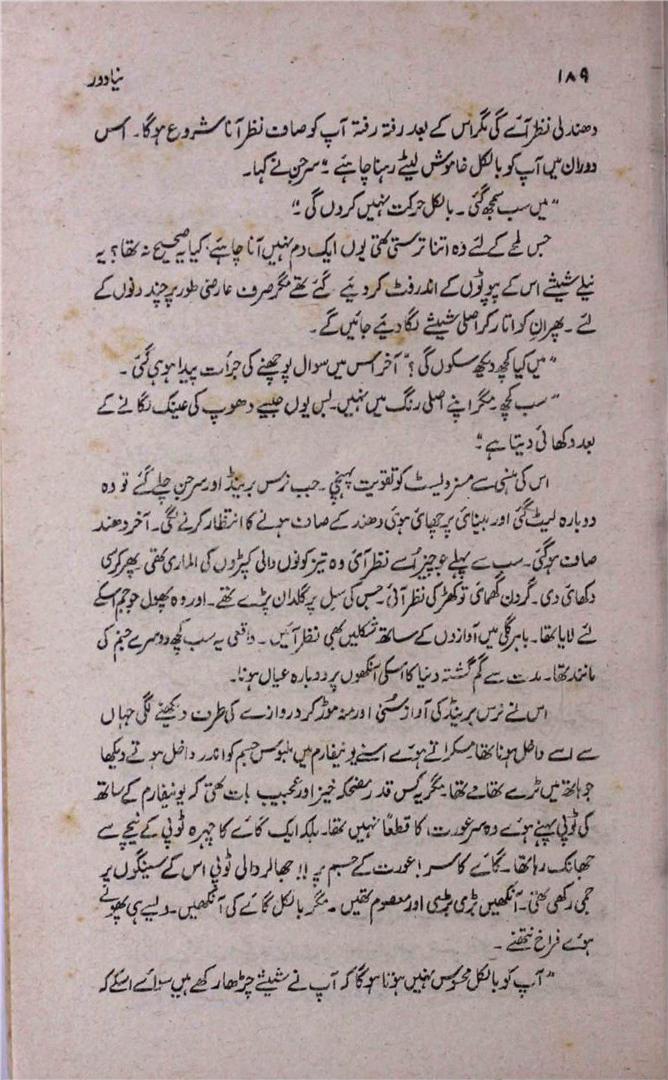 ۱۸۹
نیا دور
دھندلی نظر آئے گی مگر اس کے بعد رفتہ رفتہ آپ کو صاف نظر آنا شروع ہوگا۔ اس
دوران میں آپ کو بالکل خاموش لیٹے رہنا چاہئے " سرجن نے کہا۔
" میں سب سمجھ گئی ۔ بالکل حرکت نہیں کروں گی ۔"
جس لمحے کے لئے وہ اتنا ترستی تھی یوں ایک دم نہیں آنا چاہئے، کیا یہ صحیح نہ تھا؟ یہ
نیلے شیشے اس کے پپوٹوں کے اندر فٹ کر دیئے گئے تھے مگر صرف عارضی طور پر چند دنوں کے
لئے ۔ پھر ان کو اتار کر اصلی شیشے لگا دیئے جائیں گے۔
" میں کیا کچھ دیکھ سکوں گی ؟" آخر اس میں سوال پوچھنے کی جرأت پیدا ہو ہی گئی ۔
" سب کچھ ۔ مگر اپنے اصلی رنگ میں نہیں۔ بس یوں جیسے دھوپ کی عینک لگانے کے
بعد دکھائی دیتا ہے "
اس کی ہنسی سے مسز ولیسٹ کو تقویت پہنچی ۔ جب نرس برینڈ اور سرجن چلے گئے تو وہ
دوبارہ لیٹ گئی اور بینائی پر چھائی ہوئی دھند کے صاف ہونے کا انتظار کرنے لگی۔ آخر دھند
صاف ہو گئی۔ سب سے پہلے جو چیز اُسے نظر آئی وہ تیز کونوں والی کپڑوں کی الماری تھی پھر کرسی
دکھائی دی۔ گردن گھمائی تو کھڑکی نظر آئی، جس کی سِل پر گلدان پڑے تھے۔ اور وہ پھول جو جم اسکے
لئے لایا تھا۔ باہر گلی میں آوازوں کے ساتھ شکلیں بھی نظر آئیں ۔ واقعی یہ سب کچھ دوسرے جنم کی
مانند تھا۔ مدت سے گم گشتہ دنیا کا اسکی آنکھوں پر دوبارہ عیاں ہونا۔
اس نے نرس برینڈ کی آواز سُنی اور منہ موڑ کر دروازے کی طرف دیکھنے لگی جہاں
سے اسے داخل ہونا تھا مسکراتے ہوئے اسنے یونیفارم میں ملبوس جسم کو اندر داخل ہوتے دیکھا
جو ہاتھ میں ٹرے تھامے تھا۔ مگر یہ کس قدر مضحکہ خیز اور عجیب بات تھی کہ یونیفارم کے ساتھ
کی ٹوپی پہنے ہوئے وہ سر عورت کا قطعاً نہیں تھا۔ بلکہ ایک گائے کا چہرہ ٹوپی کے نیچے سے
جھانک رہا تھا۔ گائے کا سر! عورت کے جسم پر!! جھالر والی ٹوپی اس کے سینگوں پر
جمی رکھی تھی۔ آنکھیں بڑی بڑی اور معصوم تھیں ۔ مگر بالکل گائے کی آنکھیں۔ ویسے ہی پھولے
ہوئے فراخ نتھنے ۔
" آپ کو بالکل محسوس نہیں ہونا ہوگا کہ آپ نے شیشے چڑھا رکھے ہیں سوائے اسکے کہ